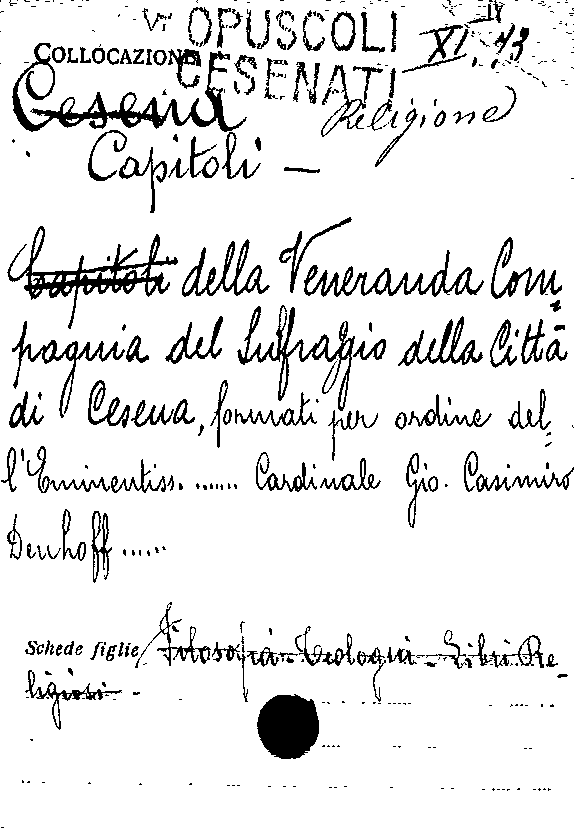 OPUSCOLI
CESENATI
IV
XI, 73
COLLOCAZIONE
Cesena
Religione
Capitoli —
Capitoli della Veneranda Com=
pagnia del Suffragio della Città
di Cesena, formati per ordine del=
l'Eminentiss. ...... Cardinale Gio. Casimiro
Denhoff ......
Schede figlie Filosofia - Teologia - Libri Re-
ligiosi -